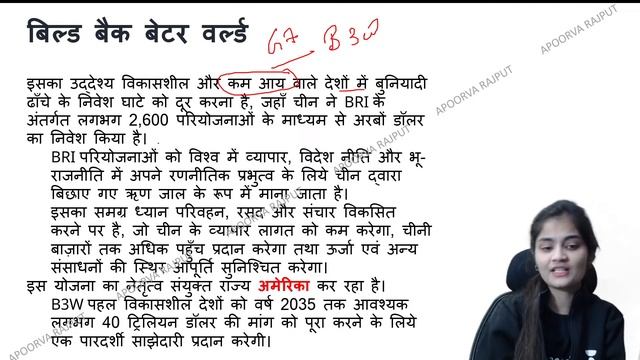 बिल्ड बैक बेटर वर्ल्ड
G7 B3W
इसका उद्देश्य विकासशील और कम आय वाले देशों में बुनियादी
ढाँचे के निवेश घाटे को दूर करना है, जहाँ चीन ने BRI के
अंतर्गत लगभग 2,600 परियोजनाओं के माध्यम से अरबों डॉलर
का निवेश किया है।
BRI परियोजनाओं को विश्व में व्यापार, विदेश नीति और भू-
राजनीति में अपने रणनीतिक प्रभुत्व के लिये चीन द्वारा
बिछाए गए ऋण जाल के रूप में माना जाता है।
इसका समग्र ध्यान परिवहन, रसद और संचार विकसित
करने पर है, जो चीन के व्यापार लागत को कम करेगा, चीनी
बाज़ारों तक अधिक पहुँच प्रदान करेगा तथा ऊर्जा एवं अन्य
संसाधनों की स्थिर आपूर्ति सुनिश्चित करेगा।
इस योजना का नेतृत्व संयुक्त राज्य अमेरिका कर रहा है।
B3W पहल विकासशील देशों को वर्ष 2035 तक आवश्यक
लगभग 40 ट्रिलियन डॉलर की मांग को पूरा करने के लिये
एक पारदर्शी साझेदारी प्रदान करेगी।
APOORVA RAJPUT
APOORVA RAJPUT
APOORVA RAJPUT
APOORVA RAJPUT
APOORVA RAJPUT
APOORVA RAJPUT